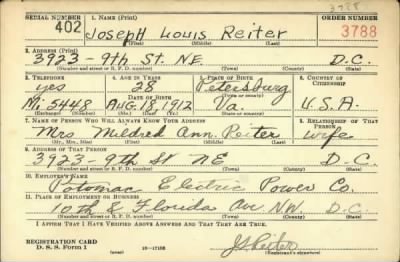 3788
SERIAL NUMBER 1. NAME (Print) ORDER NUMBER
402 Joseph Louis Reiter 3788
(First) (Middle) (Last)
2. ADDRESS (Print)
3923 - 9th St. NE. D.C.
(Number and street or R. F. D. number) (Town) (County) (State)
3. TELEPHONE 4. AGE IN YEARS 5. PLACE OF BIRTH 6. COUNTRY OF CITIZENSHIP
yes 28 Petersburg
DATE OF BIRTH
Mi 5448 Aug. 18, 1912 Va. U.S.A.
(Exchange) (Number) (Mo.) (Day) (Yr.) (State or county)
7. NAME OF PERSON WHO WILL ALWAYS KNOW YOUR ADDRESS 8. RELATIONSHIP OF THAT PERSON
Mrs Mildred Ann. Reiter wife
(Mr., Mrs., Miss) (First) (Middle) (Last)
9. ADDRESS OF THAT PERSON
3923 - 9th St NE D.C.
(Number and street or R. F. D. number) (Town) (County) (State)
10. EMPLOYER'S NAME
Potomac Electric Power Co.
11. PLACE OF EMPLOYMENT OR BUSINESS
10th & Florida Ave. N.W. D.C.
(Number and street or R. F. D. number) (Town) (County) (State)
I AFFIRM THAT I HAVE VERIFIED ABOVE ANSWERS AND THAT THEY ARE TRUE.
REGISTRATION CARD
D. S. S. Form 1 (over) 16-17105 (Registrant's signature)